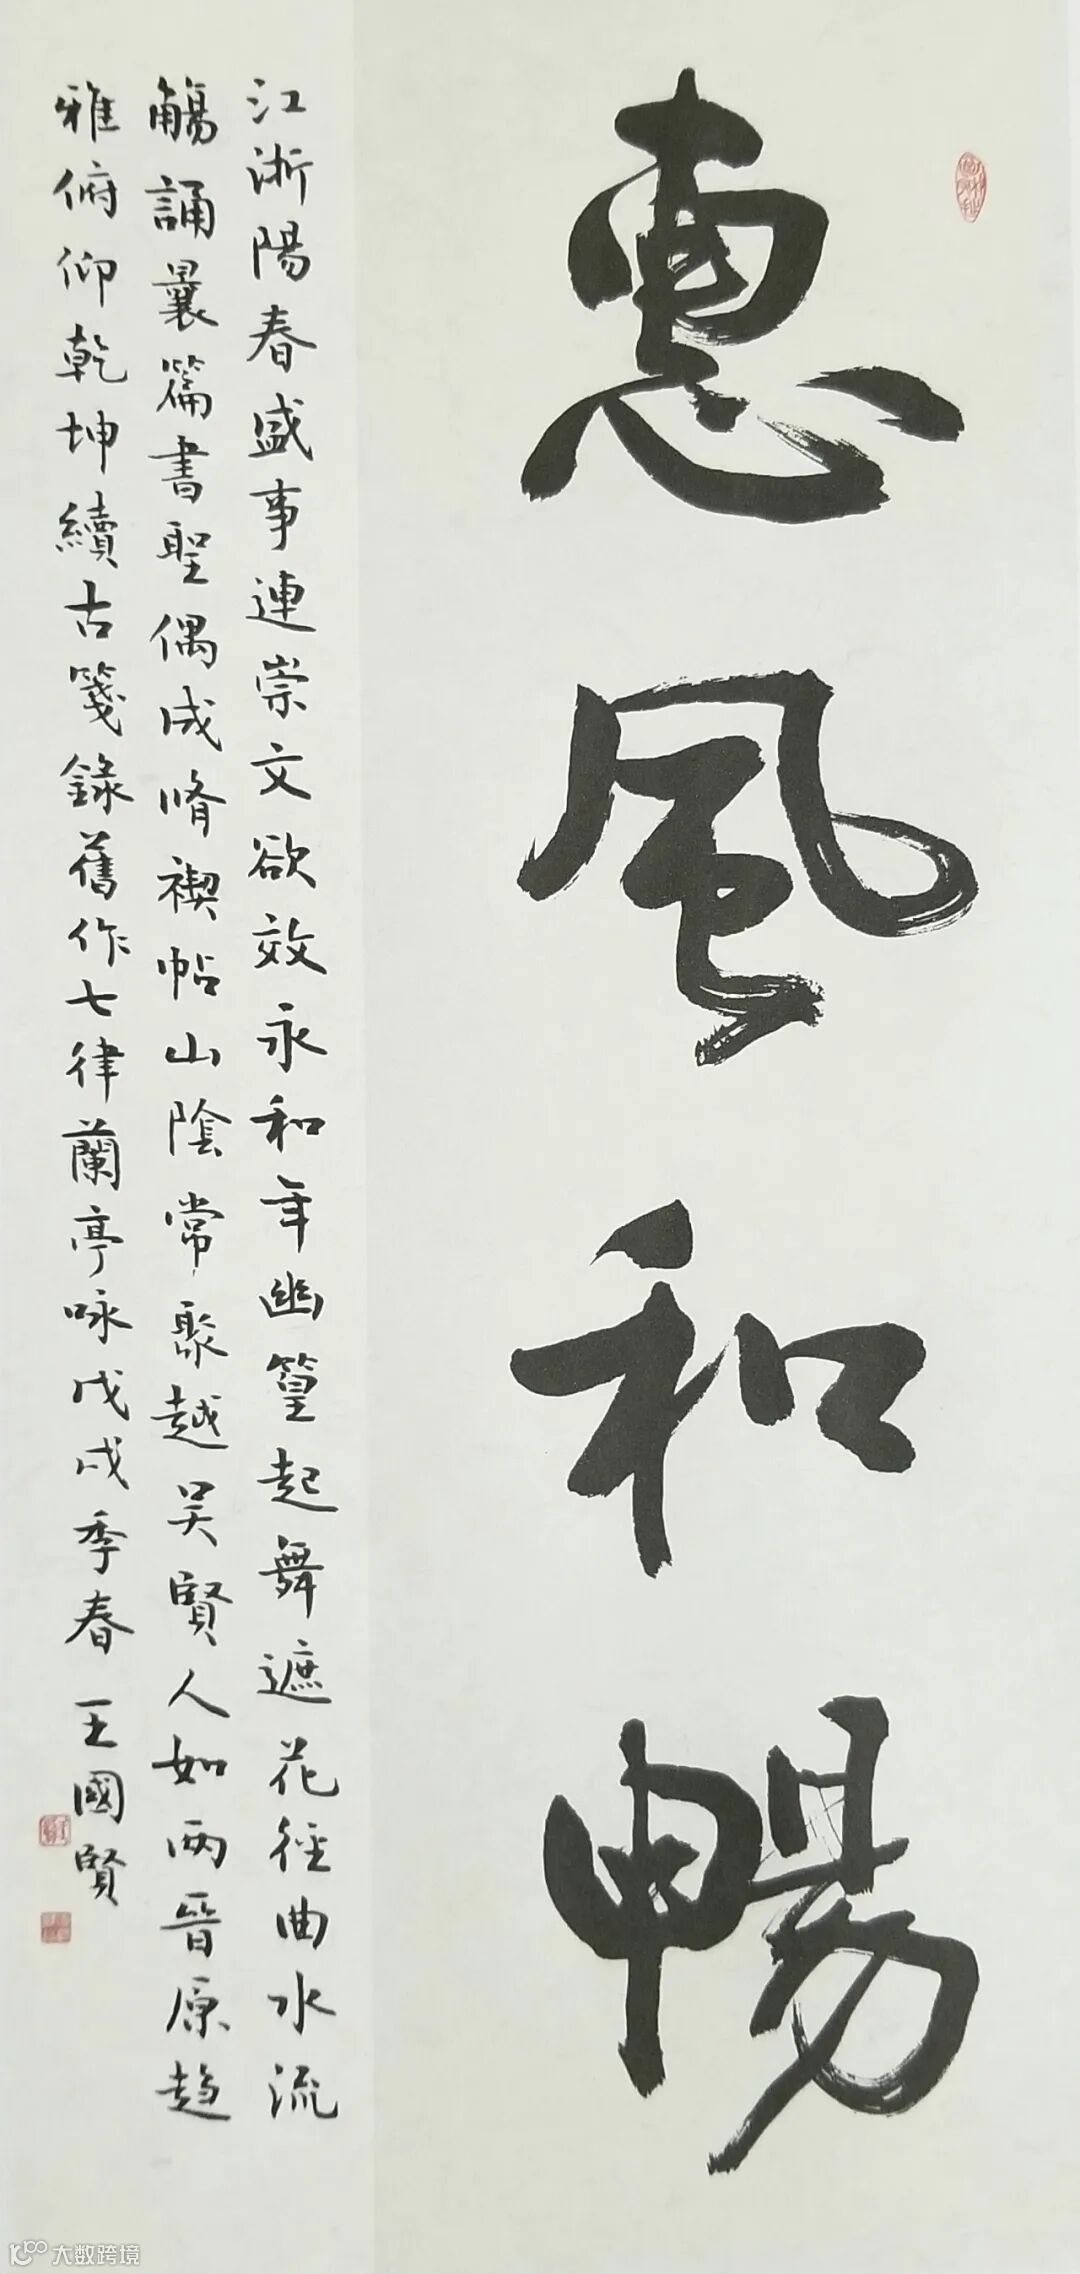 惠風和暢
江浙陽春盛事連崇文欲效永和年幽篁起舞遮花徑曲水流
觴誦曩篇書聖偶成脩禊帖山陰常聚越吴賢人如兩晉原趋
雅俯仰乾坤續古箋錄舊作七律蘭亭咏戊戌季春王國賢
大数跨境